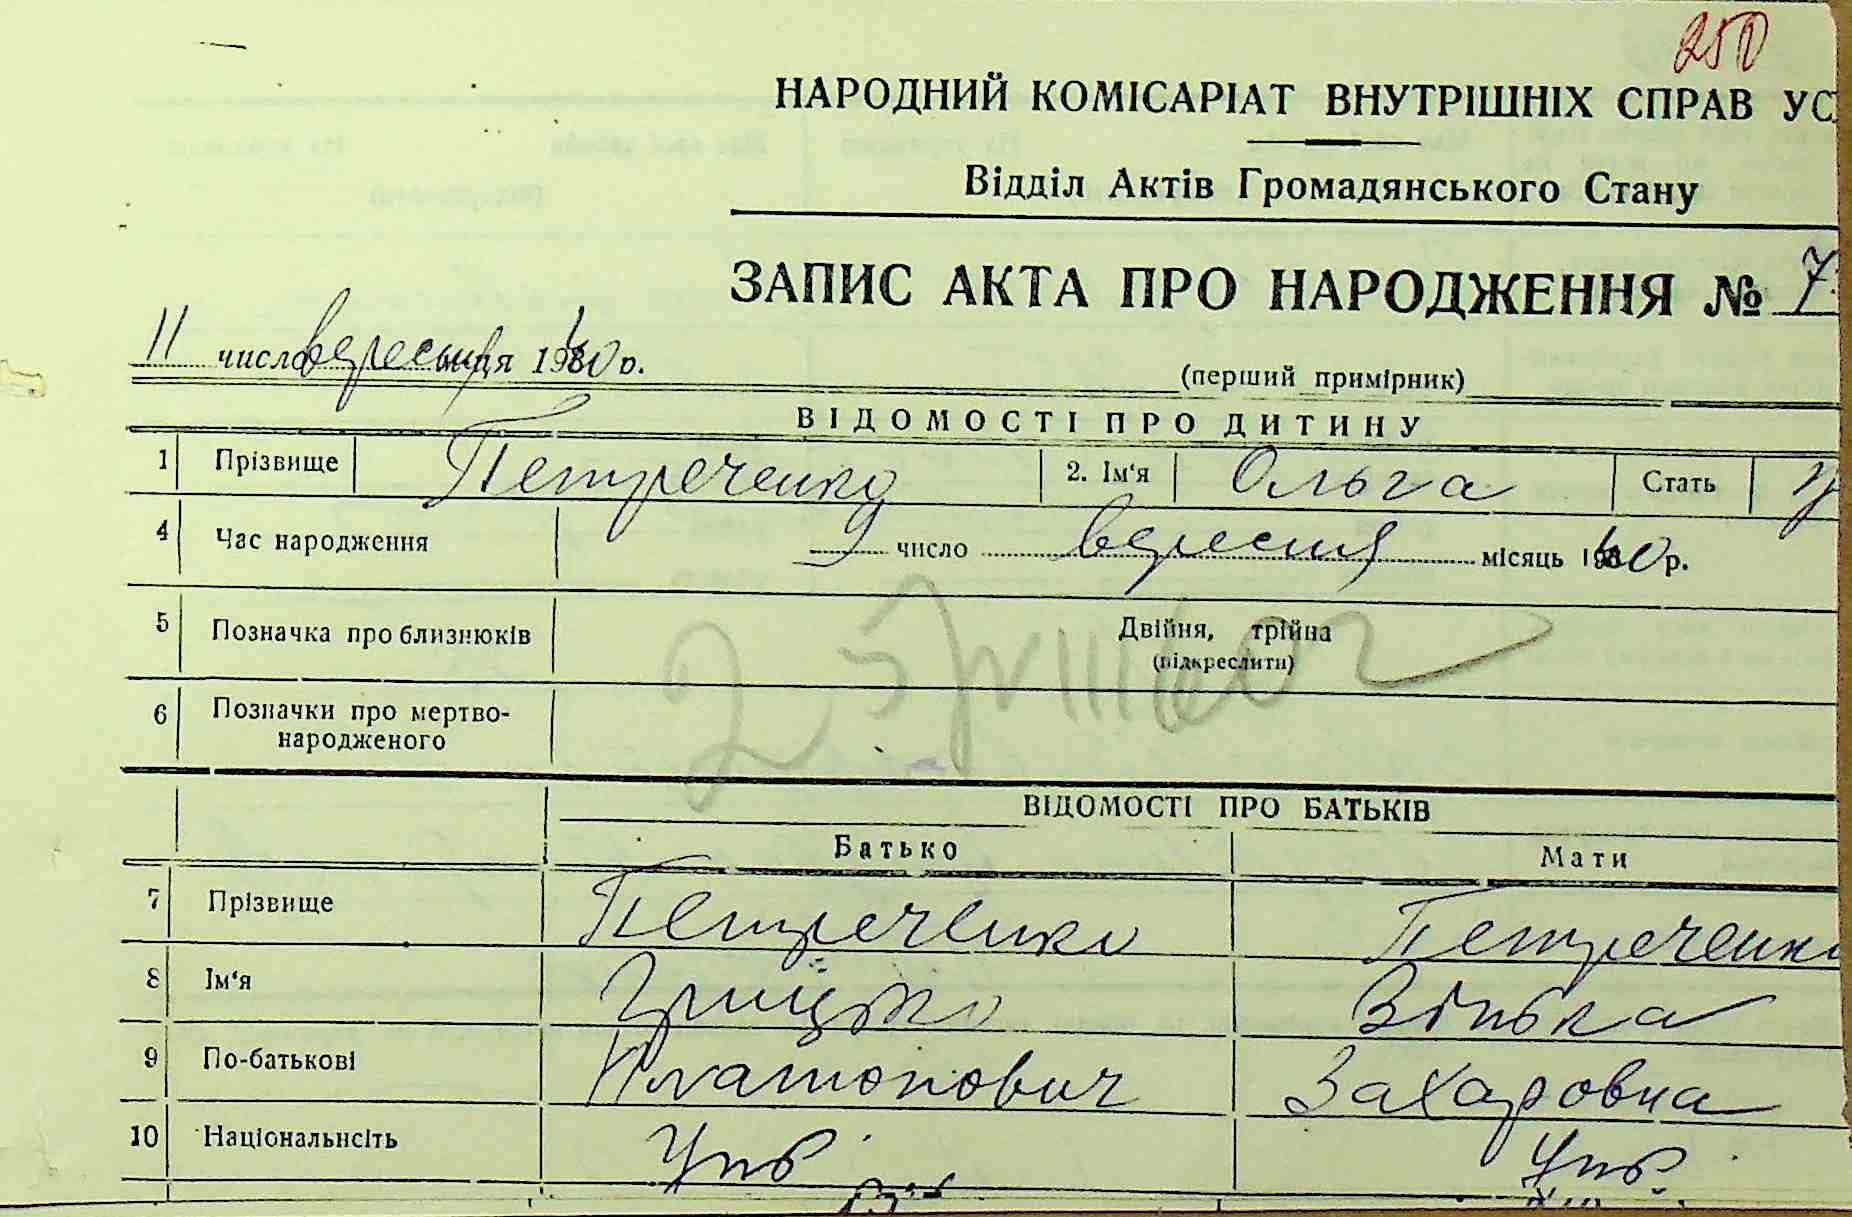 250
НАРОДНИЙ КОМІСАРІАТ ВНУТРІШНІХ СПРАВ УС
Відділ Актів Громадянського Стану
ЗАПИС АКТА ПРО НАРОДЖЕННЯ № 7
11 число вересня місяця 1940 р.
(перший примірник)
ВІДОМОСТІ ПРО ДИТИНУ
1 Прізвище Петреченко 2. Ім‘я Ольга Стать
4 Час народження 9 число вересня місяць 1940 р.
5 Позначка про близнюків Двійня, трійна
(підкреслити)
6 Позначки про мертво-
народженого
ВІДОМОСТІ ПРО БАТЬКІВ
Батько Мати
7 Прізвище Петреченко Петреченко
8 Ім‘я Грицько Зінька
9 По-батькові Платонович Захаровна
10 Національнсіть Укр Укр.